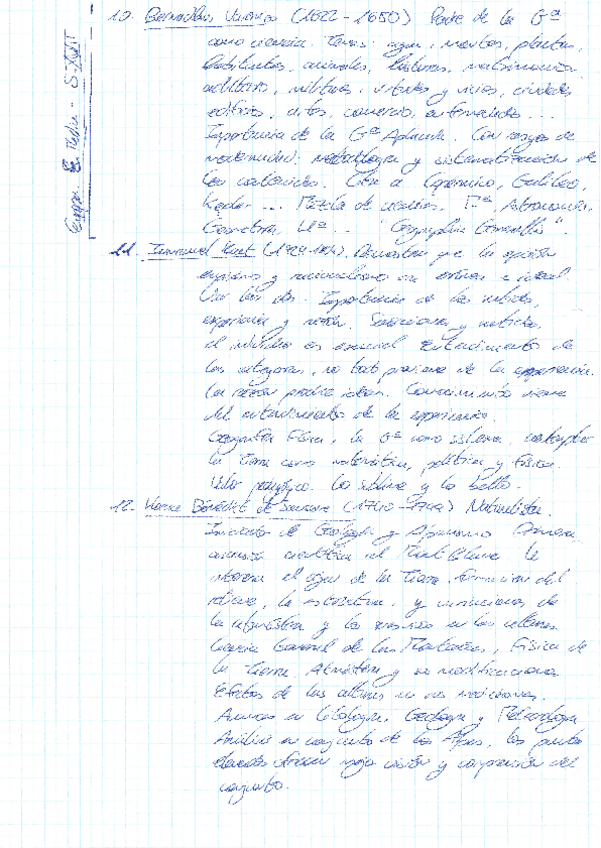 10. Bernardus Varenio (1622 - 1650) Padre de la Gª
como ciencia. Temas: agua, montes, plantas,
habitantes, animales,
militares, virtudes y vicios, ciudades
edificios, artes, comercio, enfermedades ...
Importancia de la Gª Aplicada. Con rasgos de
modernidad: metodología y sistematización de
los contenidos. Cita a Copernico, Galileo,
Kepler ... Mezcla de Astronomía,
Geometría, "Geographia Generalis".
Europa E. Media - S. XVIII
11. Immanuel Kant (1724-1804). Demuestra que la oposición
empirismo y racionalismo es
Usar los dos. Importancia de los
experiencia y razón. Sensaciones y
el método es esencial. Entendimiento de
las categorías, no todo proviene de la experiencia.
La razón produce ideas. Conocimiento viene
del entendimiento de la experiencia.
Geografía Física, la Gª como sistema,
la Tierra como matemática, política y física.
Valor Lo sublime y lo bello.
12. Horace Bénédict de Saussure (1740 - 1799) Naturalista.
Iniciador de Geología y Alpinismo. Primera
ascensión científica al Mont Blanc. Le
interesa el origen de la Tierra, formación del
relieve, la estructura, y variaciones de
la atmósfera y la en las alturas.
Ciencia General de las Montañas, Física de
la Tierra, Atmósfera y sus modificaciones.
Efectos de las alturas en sus mediciones.
Avances en Litología, Geología y Meteorología
Análisis en conjunto de los Alpes, los puntos
elevados ofrecen mejor visión y comprensión del
conjunto.